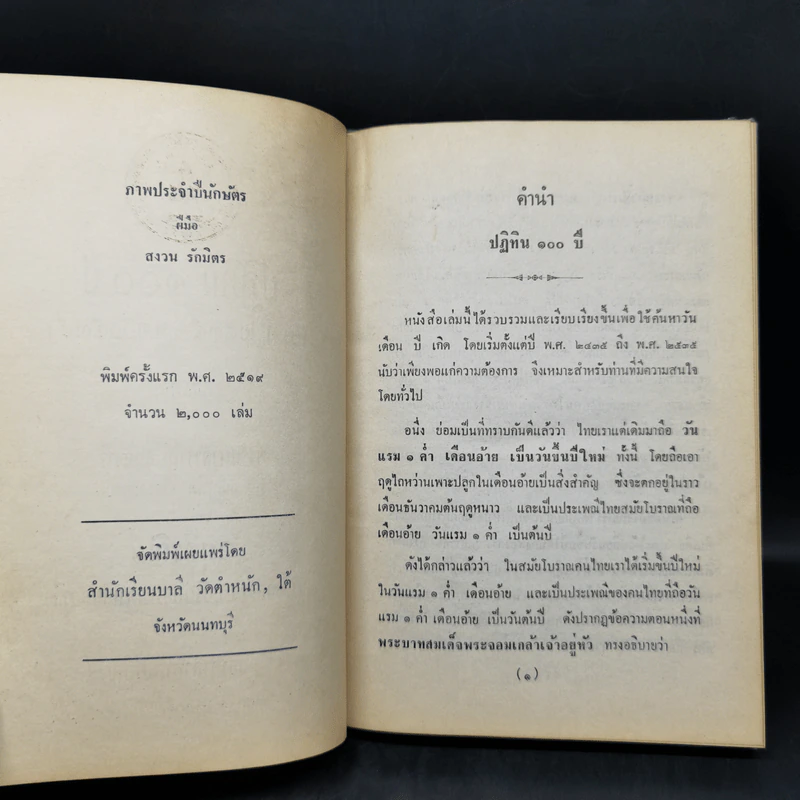 ภาพประจำปีนักษัตร
ฝีมือ
สงวน รักมิตร
พิมพ์ครั้งแรก พ.ศ. ๒๕๑๙
จำนวน ๒,๐๐๐ เล่ม
จัดพิมพ์เผยแพร่โดย
สำนักเรียนบาลี วัดตำหนัก, ใต้
จังหวัดนนทบุรี
คำนำ
ปฏิทิน ๑๐๐ ปี
หนังสือเล่มนี้ได้รวบรวมและเรียบเรียงขึ้นเพื่อใช้ค้นหาวัน
เดือน ปี เกิด โดยเริ่มตั้งแต่ปี พ.ศ. ๒๔๓๕ ถึง พ.ศ. ๒๕๓๕
นับว่าเพียงพอแก่ความต้องการ จึงเหมาะสำหรับท่านที่มีความสนใจ
โดยทั่วไป
อนึ่ง ย่อมเป็นที่ทราบกันดีแล้วว่า ไทยเราแต่เดิมมาถือ วัน
แรม ๑ ค่ำ เดือนอ้าย เป็นวันขึ้นปีใหม่ ทั้งนี้ โดยถือเอา
ฤดูไถหว่านเพาะปลูกในเดือนอ้ายเป็นสิ่งสำคัญ ซึ่งจะตกอยู่ในราว
เดือนธันวาคมต้นฤดูหนาว และเป็นประเพณีไทยสมัยโบราณที่ถือ
เดือนอ้าย วันแรม ๑ ค่ำ เป็นต้นปี
ดังได้กล่าวแล้วว่า ในสมัยโบราณคนไทยเราได้เริ่มขึ้นปีใหม่
ในวันแรม ๑ ค่ำ เดือนอ้าย และเป็นประเพณีของคนไทยที่ถือวัน
แรม ๑ ค่ำ เดือนอ้าย เป็นวันต้นปี ดังปรากฏข้อความตอนหนึ่งที่
พระบาทสมเด็จพระจอมเกล้าเจ้าอยู่หัว ทรงอธิบายว่า
(๑)